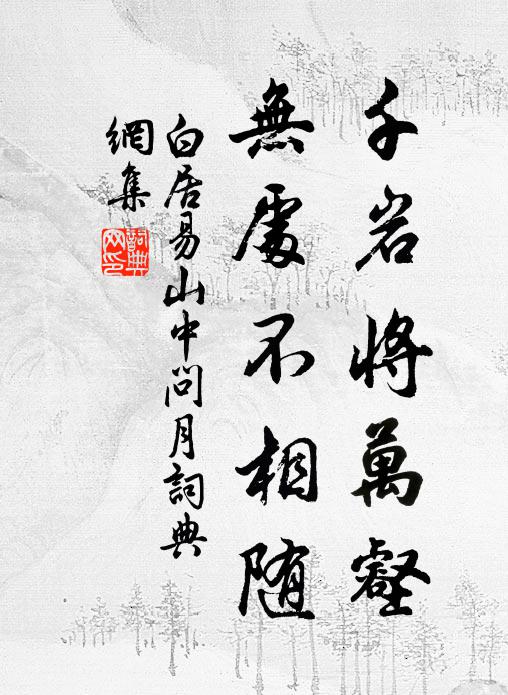 千岩將萬壑
無處不相随
白居易山中問月詞典
網集
詞典
网印